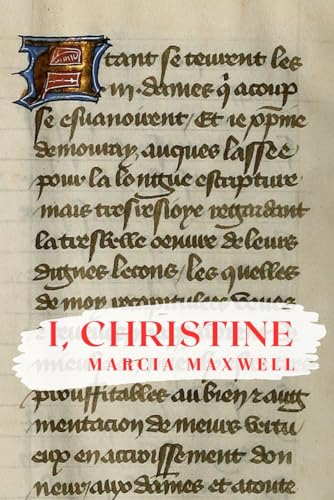 A tant se teurent les
.iij. dames q̃ acoup
se esuanouirent/ Et ie xp̃ine
demouray auques lassee
pour la longue escripture
mais tresresioye regardant
la tresbelle oeuure de leurs
dignes lecons/ les quelles
de moy recapitulees veues
I, CHRISTINE
MARCIA MAXWELL
prouffitables au bien ⁊ aug
mentacion de meurs vertu
eux en accroissement don
neur/aux dames et a toute